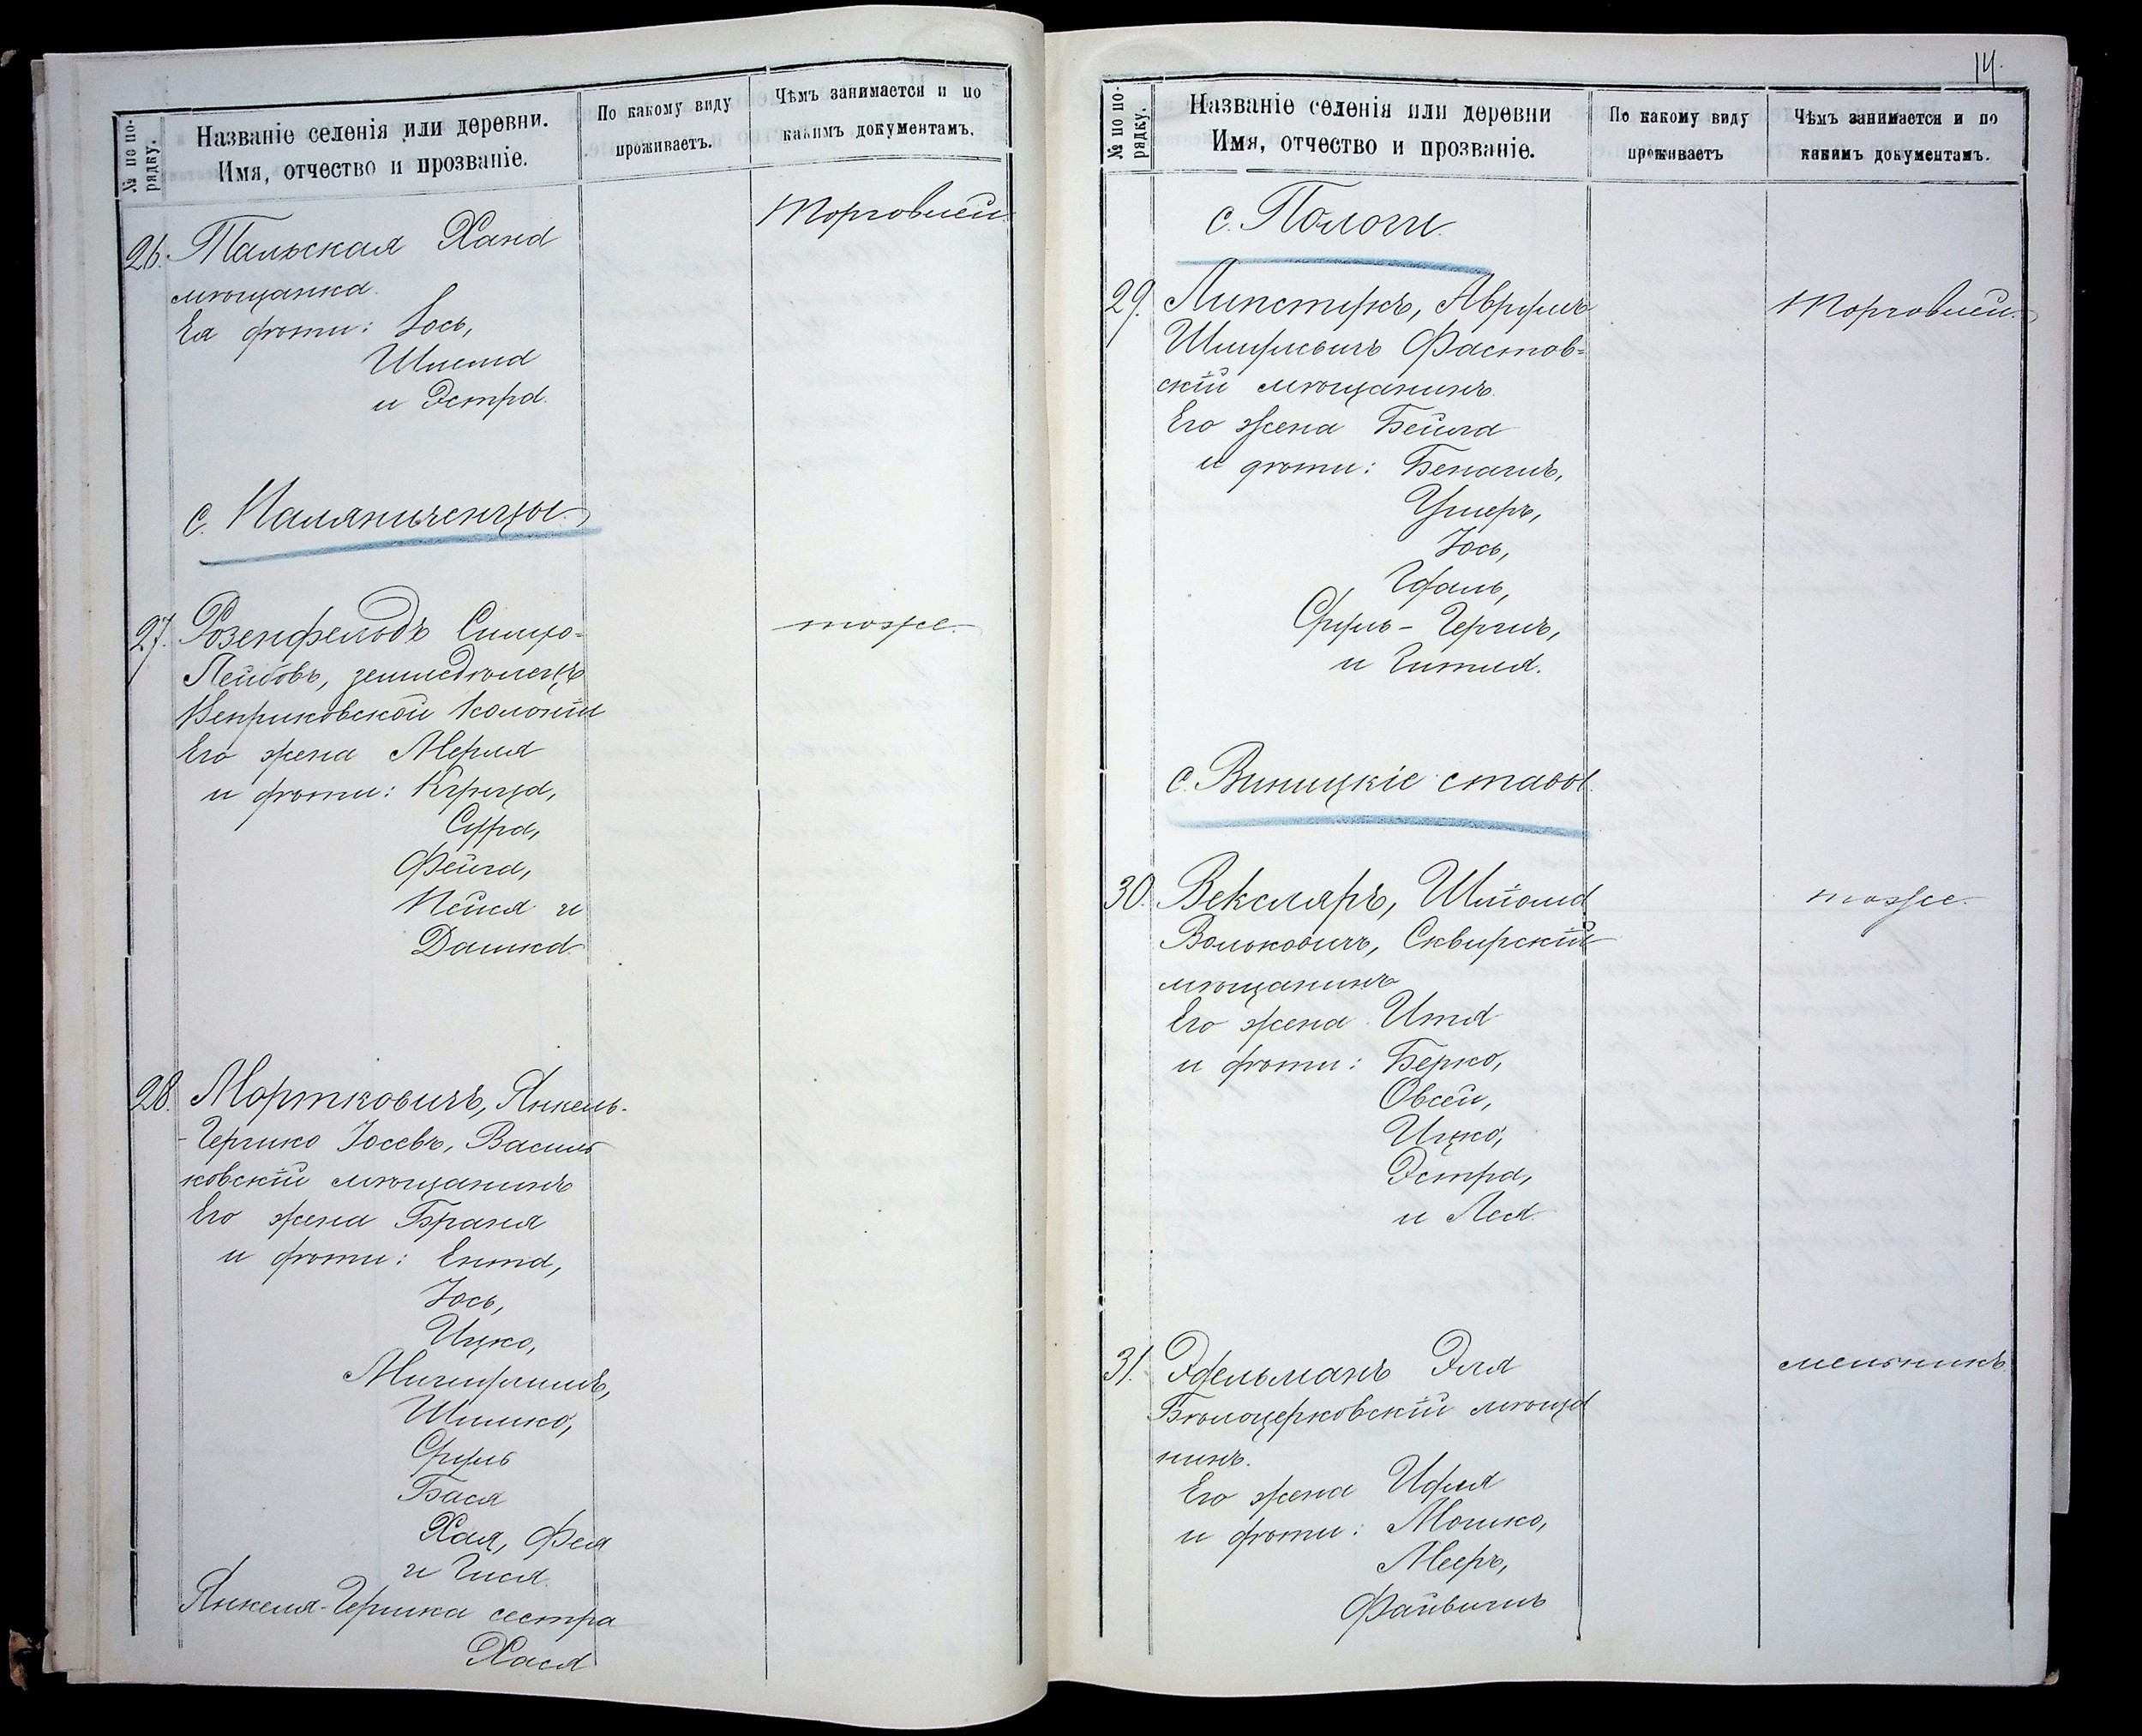 № по по-
рядку.
Названіе селенія или деревни.
Имя, отчество и прозваніе.
По какому виду
проживаетъ.
Чѣмъ занимается и по
какимъ документамъ.
26. Тальская Хана
Торговлей
мѣщанка.
Ея дѣти: Іось,
Шлема
и Эстра.
с. Паляниченцы
27. Розенфельдъ Симхо-
тоже.
Лейбовъ, земледѣлецъ
Кенриковской колоніи
Его жена Мерля
и дѣти:
Сура,
Фейга,
Пейся и
Дашка.
28. Мортковичъ, Янкель-
-Гершко Іосевъ, Василь
ковскій мѣщанинъ
Его жена Браня
и дѣти: Ента,
Іось,
Ицко,
Шишко,
Сруль
Бася
Хая, Фея
и Гися.
Янкеля-Гершка сестра
Хася
14.
№ по по-
рядку.
Названіе селенія или деревни
Имя, отчество и прозваніе.
По какому виду
проживаетъ
Чѣмъ занимается и по
какимъ документамъ.
с. Пологи.
29. Липстукъ, Аврумъ
Торговлей.
Шмулевичъ Фастов-
скій мѣщанинъ.
Его жена Бейла
и дѣти:
Ушеръ,
Іось,
Идаль,
Сруль-Гершъ,
и Гитля.
с. Виницкіе ставы.
30. Векслярь, Шлёма
тоже.
Вольковичъ, Сквирскій
мѣщанинъ
Его жена Ита
и дѣти: Берко,
Овсей,
Ицко,
Эстра,
и Лея.
31. Эдельманъ Эля
мельникъ
Бѣлоцерковскій мѣща
нинъ.
Его жена Идля
и дѣти: Мошко,
Мееръ,
Файвишъ